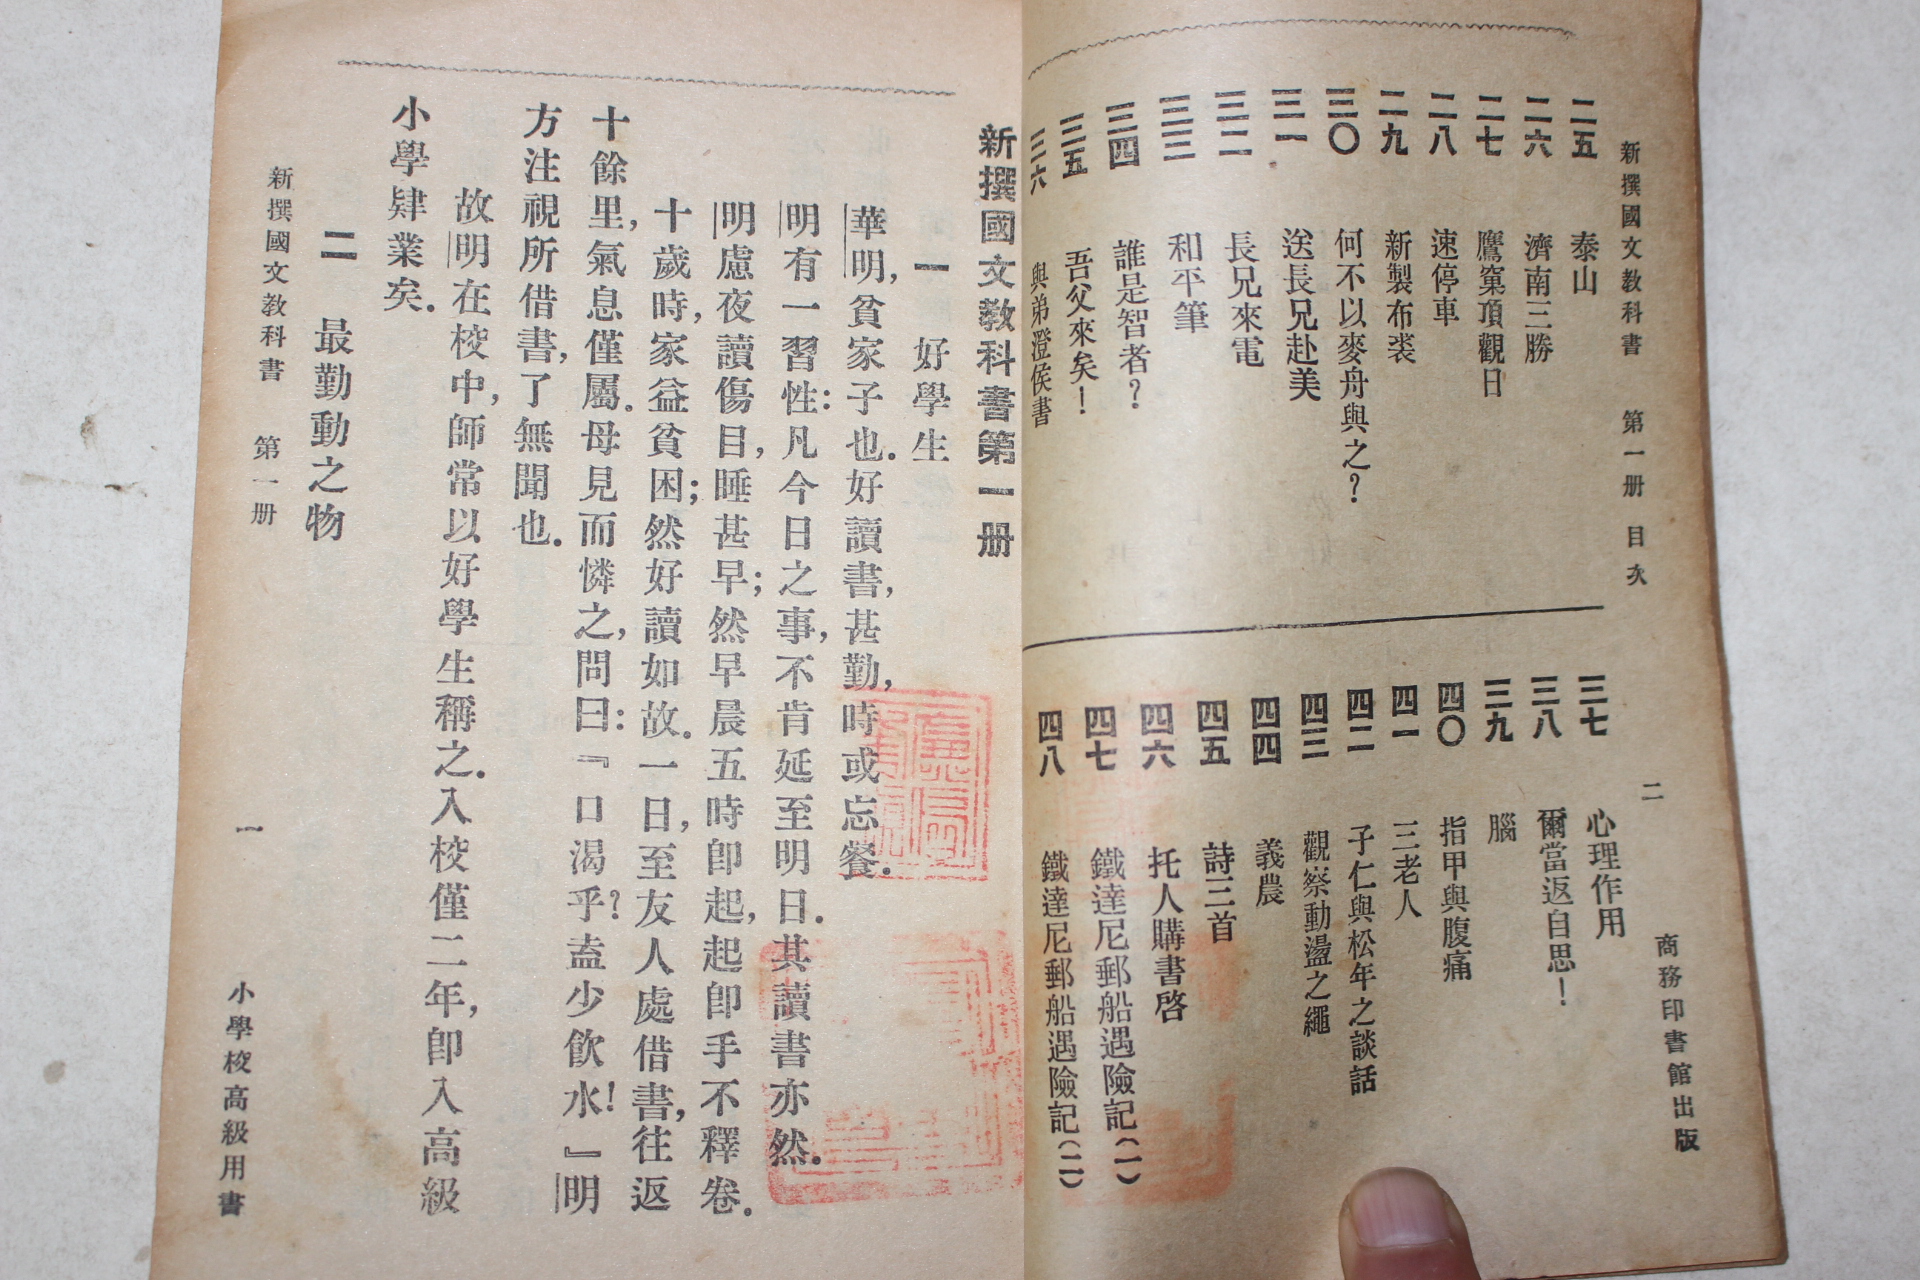 新撰國文教科書 第一册 目次 二 商務印書館出版
二五 泰山
二六 濟南三勝
二七 鷹窠頂觀日
二八 速停車
二九 新製布裘
三〇 何不以麥舟與之？
三一 送長兄赴美
三二 長兄來電
三三 和平筆
三四 誰是智者？
三五 吾父來矣！
三六 與弟澄侯書
三七 心理作用
三八 爾當返自思！
三九 腦
四〇 指甲與腹痛
四一 三老人
四二 子仁與松年之談話
四三 觀察動盪之繩
四四 義農
四五 詩三首
四六 托人購書啓
四七 鐵達尼郵船遇險記（一）
四八 鐵達尼郵船遇險記（二）
新撰國文教科書第一册
一 好學生
華明，貧家子也．好讀書，甚勤，時或忘餐．
明有一習性：凡今日之事，不肯延至明日．其讀書亦然．
明慮夜讀傷目，睡甚早；然早晨五時卽起，起卽手不釋卷．
十歲時，家益貧困；然好讀如故．一日，至友人處借書，往返
十餘里，氣息僅屬．母見而憐之，問曰：『口渴乎？盍少飮水！』明
方注視所借書，了無聞也．
故明在校中，師常以好學生稱之．入校僅二年，卽入高級
小學肄業矣．
二 最勤動之物
新撰國文教科書 第一册 一 小學校高級用書